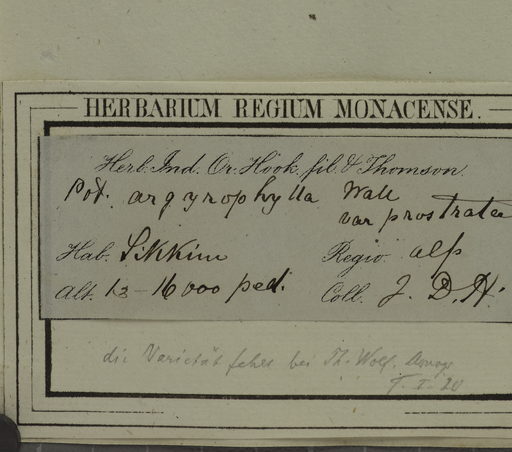 HERBARIUM REGIUM MONACENSE.
Herb. Ind. Or. Hook. fil. & Thomson.
Pot. argyrophylla Wall
var prostrata
Hab. Sikkim Regio. alp
Alt. 12-16000 ped. Coll. J. D. H.
die Varietät fehlt bei Th. Wolf.